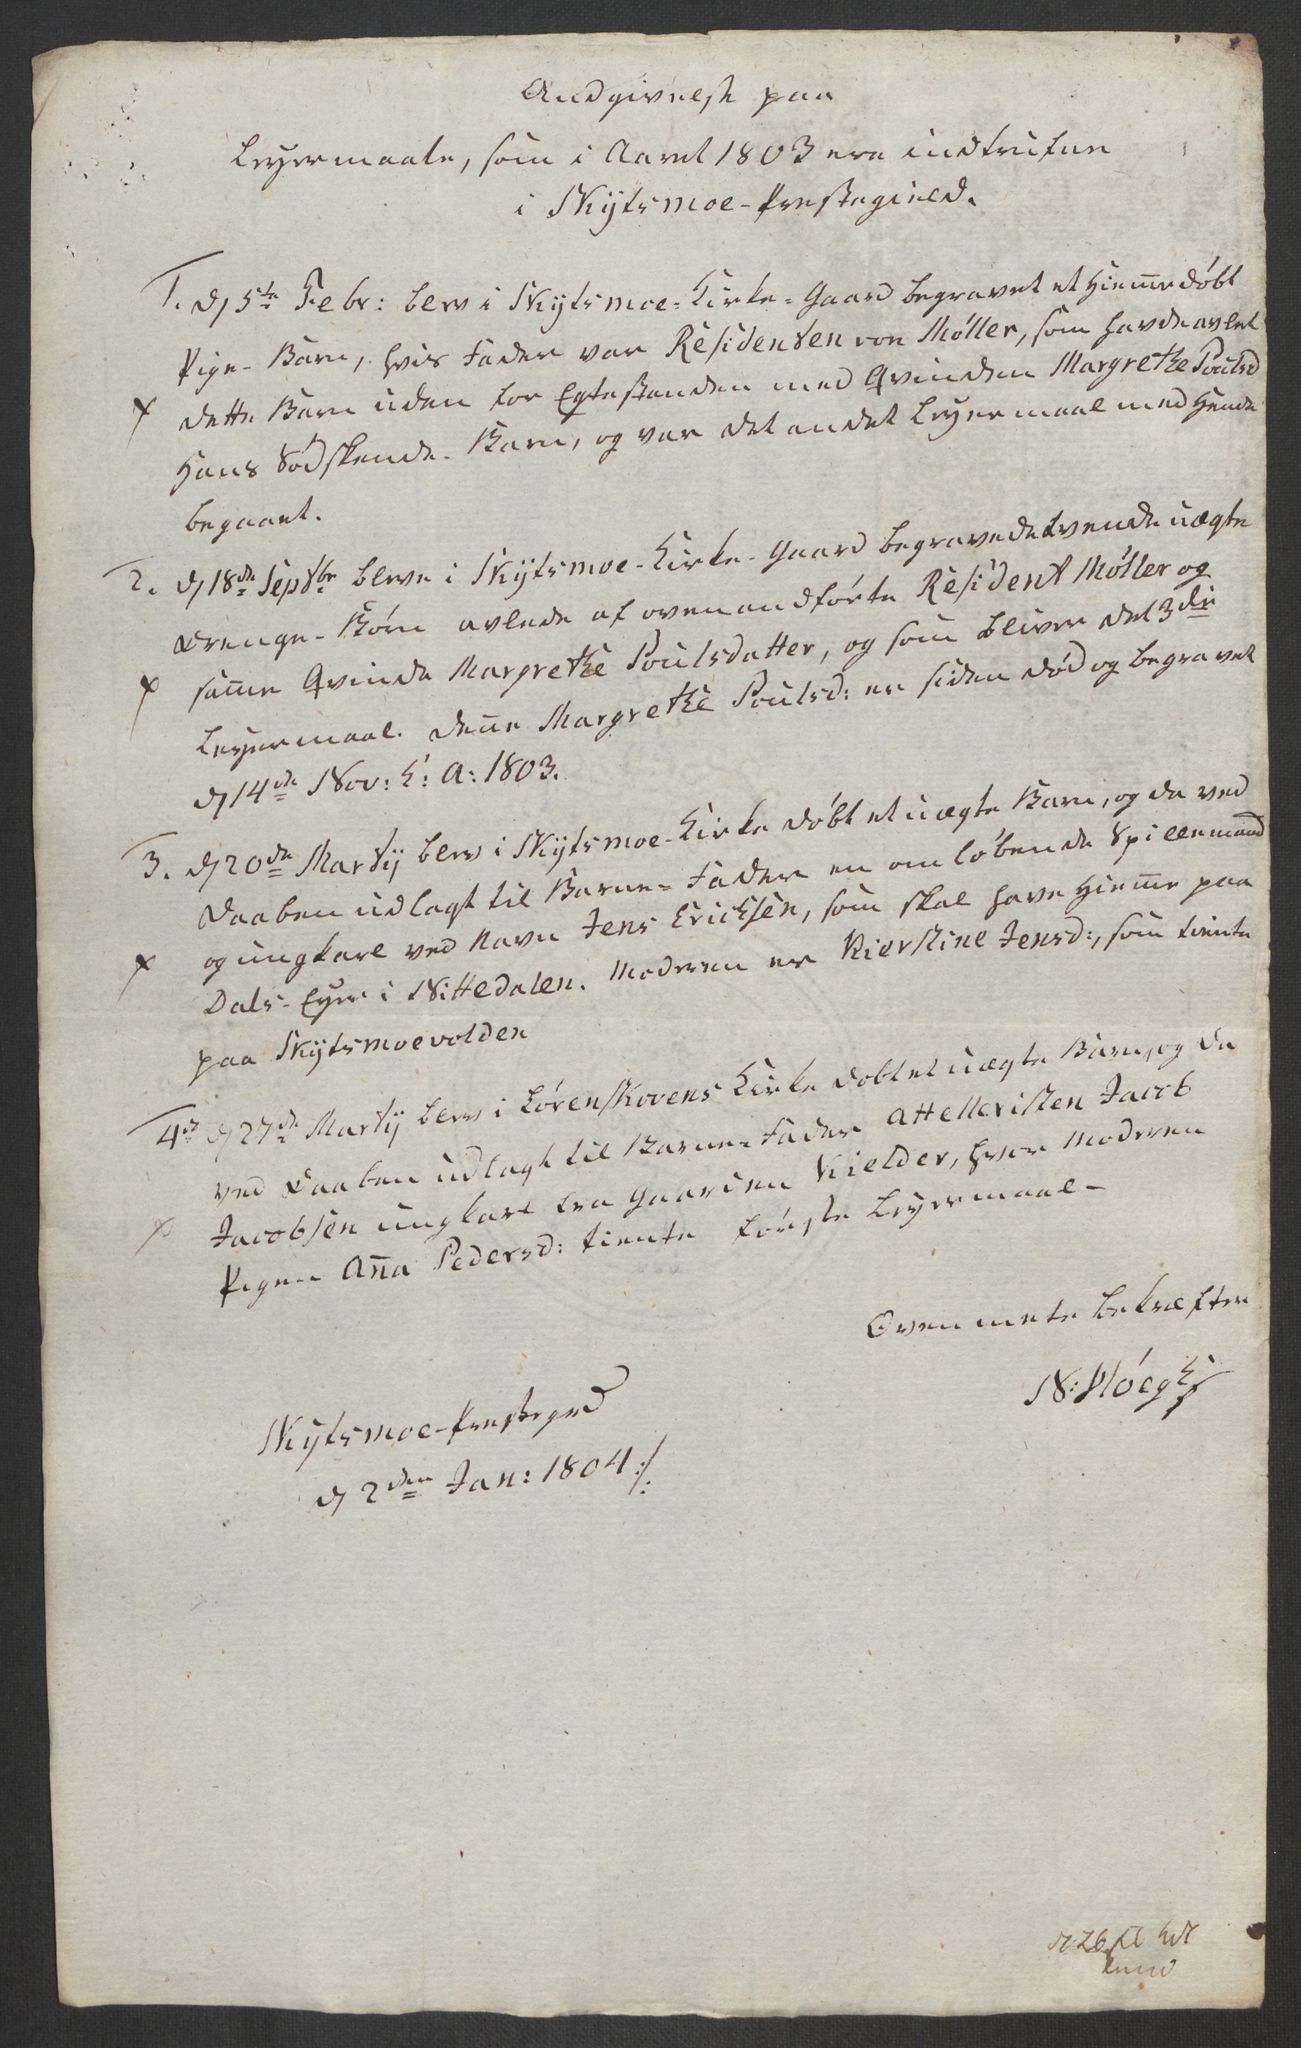 Andgivelse paa
Leyermaale, som i Aaret 1803 ere indtrufne
i Skÿtsmoe-Præstegield.
1. d/ 5te Febr: blev i Skÿtsmoe-Kirke-Gaard begravet et Hiem̄edøbt
Pige-Barn, hvis Fader var Residenten von Møller, som havde avlet
dette Barn uden for Egtestanden med Qvinden Margrethe Poulsd
Hans Sødskende-Barn, og var det andet Leyermaal med Hende
begaaet.
2. d/ 18de Septbr bleve i Skÿtsmoe-Kirke-Gaard begravede tvende uægte
Drenge-Børn avlede af ovenandførte Resident Møller og
sam̄e Qvinde Margrethe Poulsdatter, og som bliver det 3die
Leyermaal. Den̄e Margrethe Poulsd: er siden død og begravet
d/ 14de Nov: h: A: 1803.
3. d/ 20de Martÿ blev i Skÿtsmoe-Kirke døbt et uægte Barn, og da ved
Daaben udlagt til Barne-Fader en omløbende Spillemand
og ungkarl ved Navn Jens Ericksen, som skal have Hiem̄e paa
Dals-Eyer i Nittedalen. Moderen er Kierstine Jensd:, som tiente
paa Skÿtsmoevolden
4de d/ 27de Martÿ blev i Lørenskovens Kirke døbt et uægte Barn, og da
ved Daaben udlagt til Barne-Fader Attelleristen Jacob
Jacobsen ungkarl fra Gaarden Kielder, hvor Moderen
Pigen An̄a Pedersd: tiente første Leyermaal-
Ovenmelte bekræfter
N: Høegh
Skÿtsmoe-Præstegrd
d/ 2den Jan: 1804 ./.